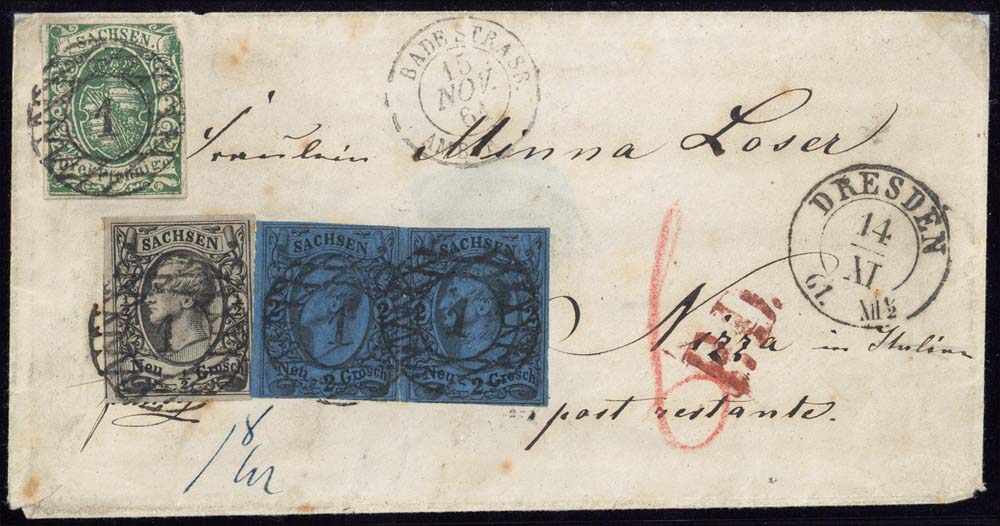 SACHSEN.
1
BADE STRASB.
15
NOV.
61
AMB.
Fräulein Minna Loser
DRESDEN
14
XI
61. XII ½
SACHSEN
1
Neu ½ Grosch
SACHSEN
2 1 2
Neu 2 Grosch
SACHSEN
2 1 2
Neu 2 Grosch
6
P.D.
Nizza in Italien
post restante.